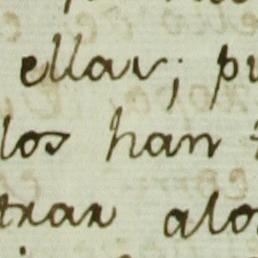 ellas; pu
los han t
trar alos